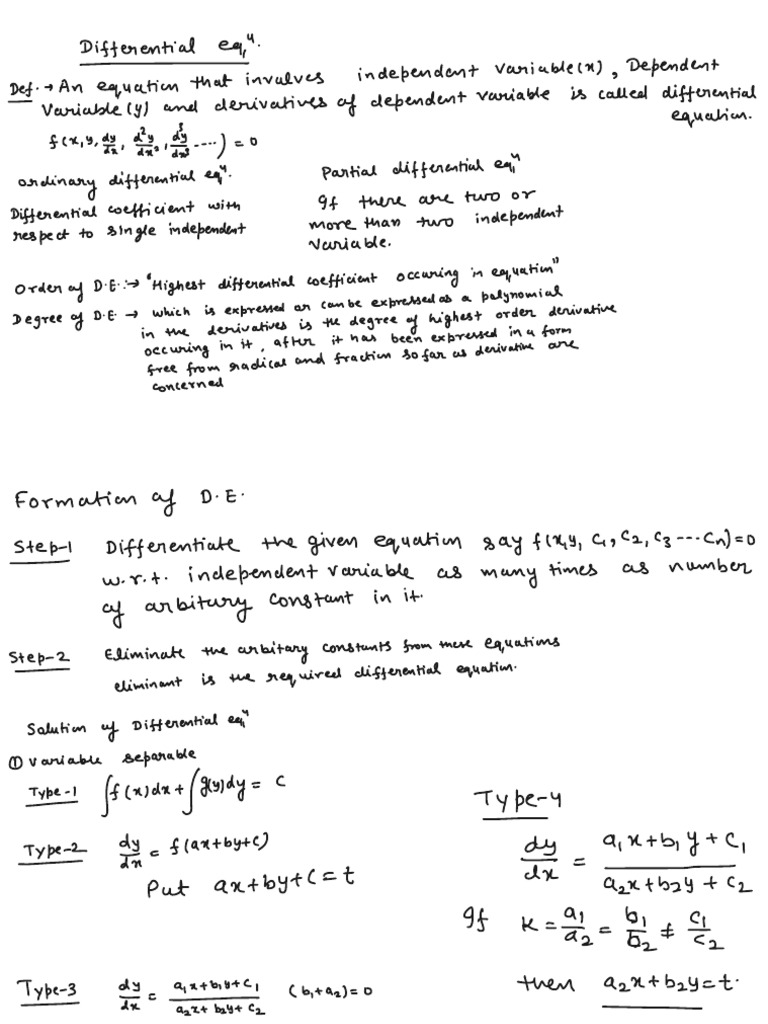 Differential eqⁿ.
Def.→ An equation that involves independent variable(x), Dependent
variable(y) and derivatives of dependent variable is called differential
equation.
f(x,y,dy/dx, d²y/dx², d³y/dx³ ----) = 0
ordinary differential eqⁿ.
Differential coefficient with
respect to single independent
Partial differential eqⁿ
If there are two or
more than two independent
variable.
Order of D.E.:→ "Highest differential coefficient occuring in equation"
Degree of D.E → which is expressed or can be expressed as a polynomial
in the derivatives is the degree of highest order derivative
occuring in it, after it has been expressed in a form
free from radical and fraction so far as derivative are
concerned
Formation of D.E.
Step-1 Differentiate the given equation say f(x,y, C₁, C₂, C₃ --- Cn)=0
w.r.t. independent variable as many times as number
of arbitury constant in it.
Step-2 Eliminate the arbitary constants from these equations
eliminant is the required differential equation.
Solution of Differential eqⁿ
① variable separable
Type-1 ∫f(x)dx + ∫g(y)dy = C
Type-2 dy/dx = f(ax+by+c)
Put ax+by+c = t
Type-3 dy/dx = a₁x+b₁y+c₁/a₂x+b₂y+c₂ (b₁+a₂)=0
Type-4
dy/dx = a₁x+b₁y+c₁/a₂x+b₂y+c₂
If K = a₁/a₂ = b₁/b₂ ≠ c₁/c₂
then a₂x+b₂y=t.